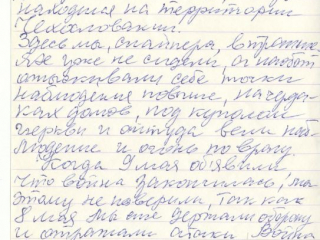 находился на территории
Чехословакии.
Здесь мы, снайпера, в траншее
уже не сидели, а наоборот
отыскивали себе точки
наблюдения повыше, на черда-
ках домов, под куполом
церкви и оттуда вели наб-
людение и огонь по врагу.
Когда 9 мая объявили
что война закончилась, мы
этому не поверили, так как
8 мая мы еще держали оборону
и отражали атаки. Война